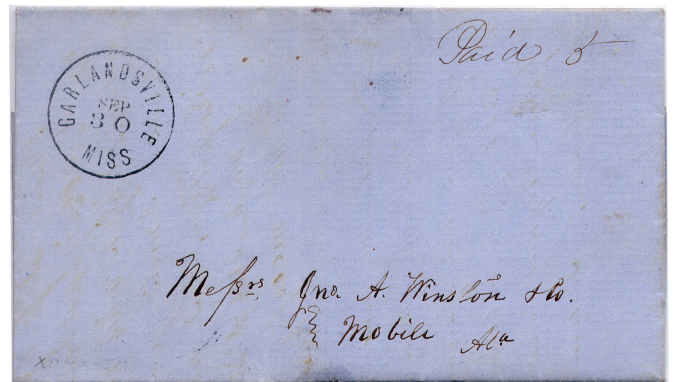 Paid 5
GARLANDSVILLE
SEP
30
MISS
Messrs Jno. A. Winston & Co.
Mobile Ala